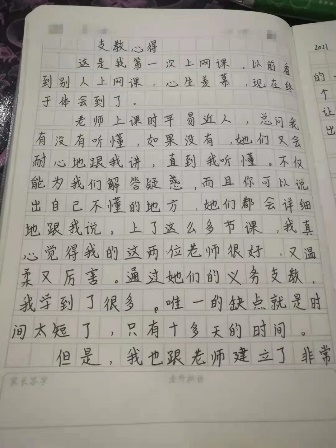 支教心得
这是我第一次上网课，以前看
到别人上网课，心生羡慕，现在终
于体会到了。
老师上课时平易近人，总问我
有没有听懂，如果没有，她们又会
耐心地跟我讲，直到我听懂。不仅
能为我们解答疑惑，而且你可以说
出自己不懂的地方，她们都会详细
地跟我说，上了这么多节课，我真
心觉得我的这两位老师很好，又温
柔又厉害。通过她们的义务支教，
我学到了很多。唯一的缺点就是时
间太短了，只有十多天的时间。
但是，我也跟老师建立了非常
家长签字